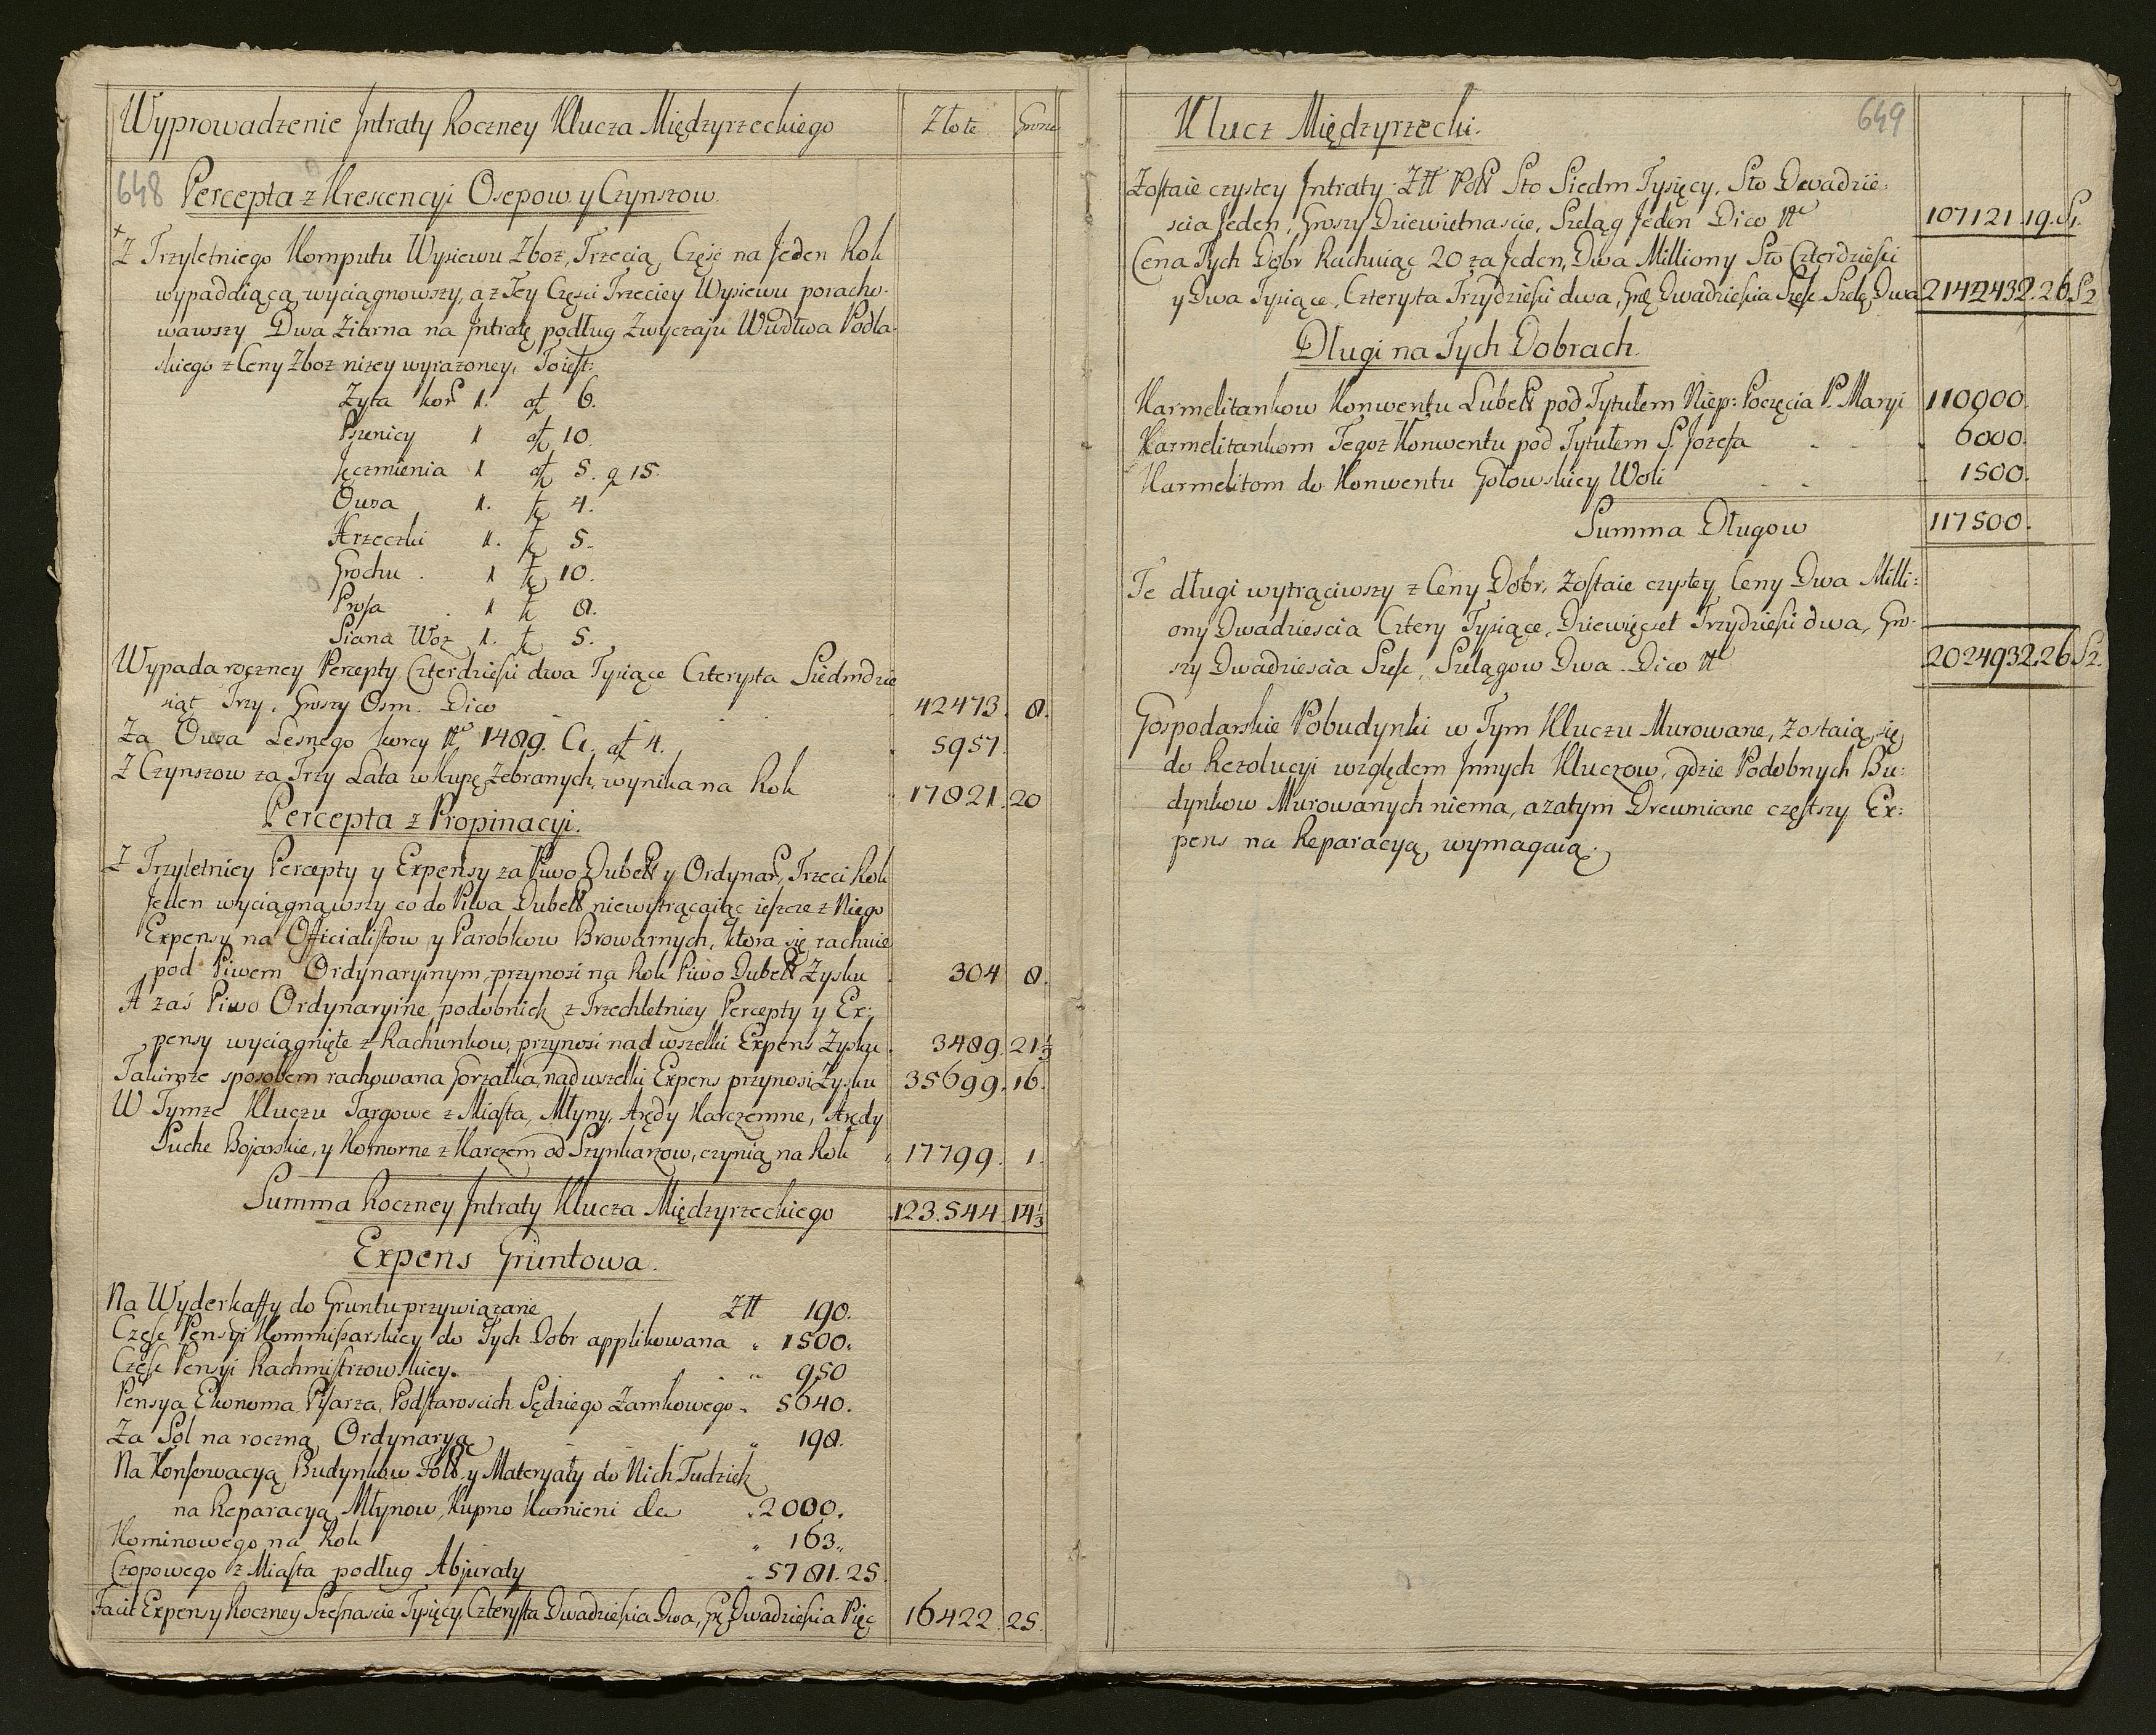 Wyprowadzenie Jntraty Roczney Klucza Międzyrzeckiego Złote Grosze
648 Percepta z Krescencyi Osepow y Czynszow
Z Trzyletniego Komputu Wysiewu Zboz, Trzecią Częsc na Jeden Rok
wypaddiącą wyciągnowszy, a z Tey Częsci Trzeciey Wysiewu poracho-
wawszy Dwa Ziarna na Jntratę podług Zwyczaju Wudztwa Podla
skiego z Ceny Zboz nizey wyrazoney, Toiest:
Zyta kor 1. at 6.
Pszenicy 1 at 10.
Jęczmienia 1 at 5. g 15.
Owsa 1. t 4.
Krzeczki 1. t 5.
Grochu . 1 t 10.
Prosa . 1 t 8.
Siana Woz 1. t 5.
Wypada roczney Percepty Czterdziesci dwa Tysiące Czterysta Siedmdzie
siąt Trzy, Groszy Osm. Dico 42473. 8.
Za Owsa Lesnego korcy No 1489. C. at 4. 5957.
Z Czynszow za Trzy Lata w Kupę Zebranych, wynika na Rok 17821. 20
Percepta z Propinacyi.
Z Trzyletniey Percepty y Expensy za Piwo Dubelt y Ordynar, Trzeci Rok
Jeden wyciągnąwszy co do Piwa Dubelt, niewytrącaiąc ieszcze z Niego
Expensy na Officialistow y Parobkow Browarnych, ktora się rachuie
pod Piwem Ordynaryinym, przynosi na Rok Piwo Dubelt Zysku 304 8.
A zaś Piwo Ordynaryine, podobniesz z Trzechletniey Percepty y Ex:
pensy wyciągnięte z Rachunkow, przynosi nad wszelki Expens Zysku 3489. 21⅓
Takimze sposobem rachowana Gorzałka, nad wszelki Expens przynosi Zysku 35699. 16.
W Tymze Kluczu Targowe z Miasta, Młyny, Arędy Karczemne, Arędy
Suche Bojarskie, y Komorne z Karczem od Szynkarzow, czynią na Rok 17799. 1.
Summa Roczney Jntraty Klucza Międzyrzeckiego 123.544. 14⅓
Expens Gruntowa.
Na Wyderkaffy do Gruntu przywiązane Ztt 190.
Częsc Pensyi Kommissarskiey do Tych Dobr applikowana „ 1500.
Częsc Pensyi Rachmistrzowskiey. „ 950
Pensya Ekonoma, Pisarza, Podstaroscich Sędziego Zamkowego „ 5640.
Za Sol na roczną Ordynaryą „ 198.
Na Konserwacyą Budynkow Folw, y Materyały do Nich, Tudziesz
na Reparacyą Młynow, Kupno Kamieni &c „ 2000.
Kominowego na Rok „ 163„
Czopowego z Miasta podług Abjuraty „ 5781. 25.
Facit Expensy Roczney Szesnascie Tysięcy, Czterysta Dwadziescia Dwa, gr Dwadziescia Pięc 16422. 25.
Klucz Międzyrzecki. 649
Zostaie czystey Jntraty Ztt Pols Sto Siedm Tysięcy, Sto Dwadzie:
scia Jeden, Groszy Dziewietnascie, Szeląg Jeden Dico No 107121. 19. S1.
Cena Tych Dobr Rachuiąc 20 za Jeden, Dwa Milliony Sto Czterdziesci
y Dwa Tysiące, Czterysta Trzydziesci dwa, Gro Dwadziescia Szesc Szelą, Dwa 2142432. 26 S2
Długi na Tych Dobrach.
Karmelitankow Konwentu Lubels pod Tytułem Niep: Poczęcia P. Maryi 110000.
Karmelitankom Tegoz Konwentu pod Tytułem S. Jozefa 6000.
Karmelitom do Konwentu Golowskiey Woli 1500.
Summa Długow 117500.
Te długi wytrąciwszy z Ceny Dobr, Zostaie czystey Ceny Dwa Milli:
ony Dwadziescia Cztery Tysiące, Dziewięcset Trzydziesci dwa, Gro-
szy Dwadziescia Szesc, Szelągow Dwa. Dico No 2024932. 26 S2.
Gospodarskie Pobudynki w Tym Kluczu Murowane, zostaią się
do Rezolucyi względem Jnnych Kluczow, gdzie Podobnych Bu:
dynkow Murowanych niema, a zatym Drewniane częstszy Ex:
pens na Reparacyą wymagaią.